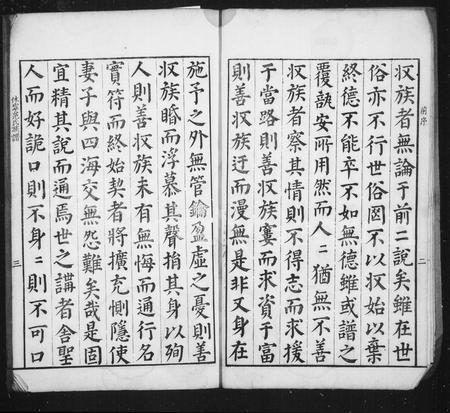 前序
收族者無論于前二說矣雖在世
俗亦不行世俗图不以收始以棄
終德不能卒不如無德雖或譜之
覆執安所用然而人二猶無不善
收族者察其情則不得志而求援
于當路則善收族窶而求資于富
則善收族迂而漫無是非又身在
二
施予之外無管鑰盈虛之憂則善
收族婚而浮慕其聲捐其身以殉
人則善收族未有無悔而通行名
實符而終始契者將擴充惻隱使
妻子與四海交無怨難矣哉是固
宜精其說而通焉世之講者舍聖
人而好詭口則不身二則不可口
休寧 氏族譜
三